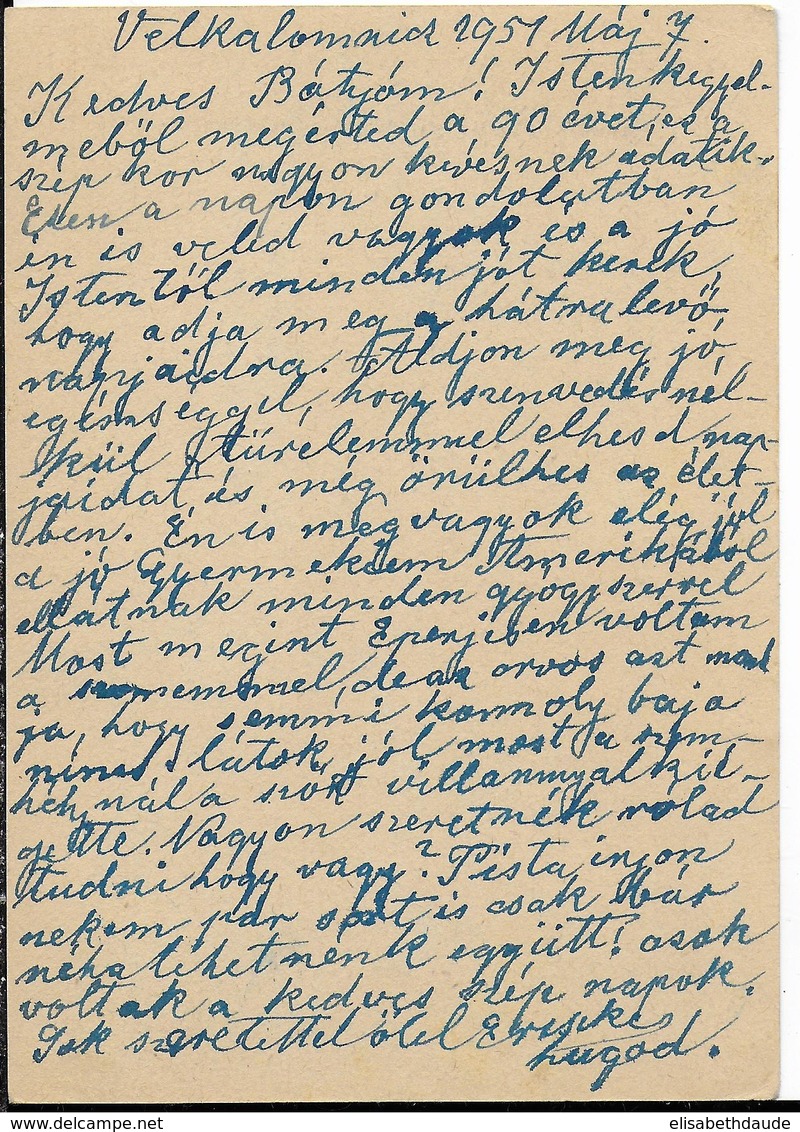 Velkalomnica 1951 Máj 7.
Kedves Bátyóm! Isten kegyel-
meből megérted a 90 évet, ez a
szép kor nagyon kevésnek adatik.
Ezen a napon gondolatban
én is veled vagyok és a jó
Istentől minden jót kerek,
hogy adja meg a hátralevő
napjaidra. Áldjon meg jó
egészséggel, hogy szenvedés nél-
kül türelemmel elhesd nap-
jaidat és még örülhes az élet-
ben. Én is megvagyok elég jól
a jó Gyermekeim Amerikából
ellátnak minden gyógyszerrel
Most megint Eperjesen voltam
a szememmel, de az orvos azt mond
ja, hogy semmi komoly baja
nincs látok jól most a szem-
nél a szort villannyal kié-
gette. Nagyon szeretnék rólad
tudni hogy vagy? Pista irjon
nekem pár sort is csak bár
néha lehetnénk együtt! azok
voltak a kedves szép napok.
Sok szeretettel ölel Erziké
hugod.
elisabethdaude